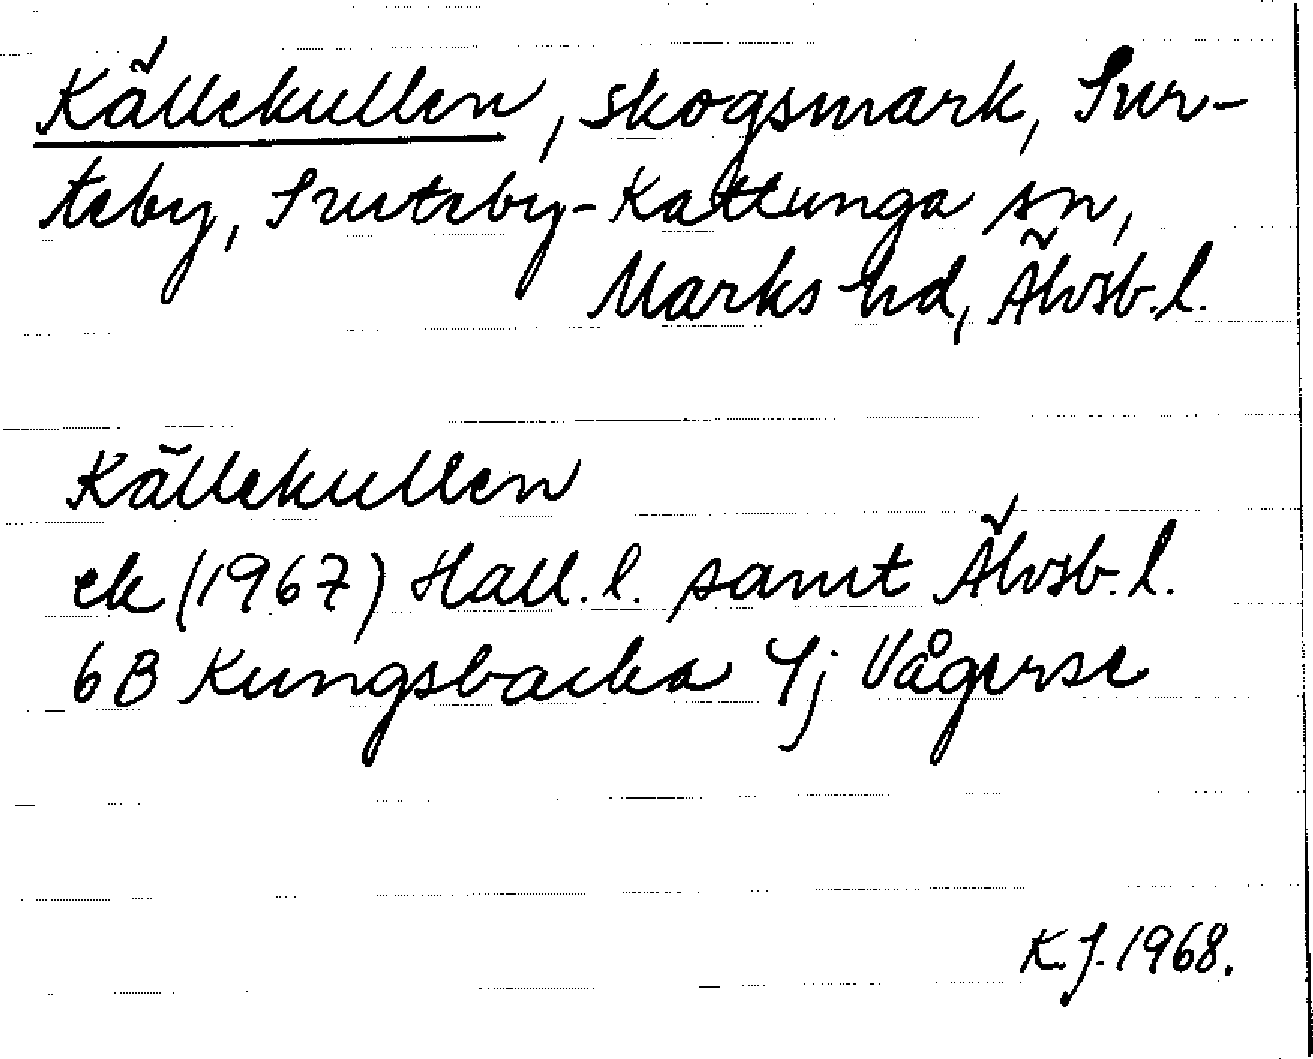 Källekullen, skogsmark, Sur-
teby, Surteby-Kattunga sn,
Marks hd, Älvsb. l.
Källekullen
ek (1967) Hall. l. samt Älvsb. l.
6B Kungsbacka 4j Vågerse
K. J. 1968.